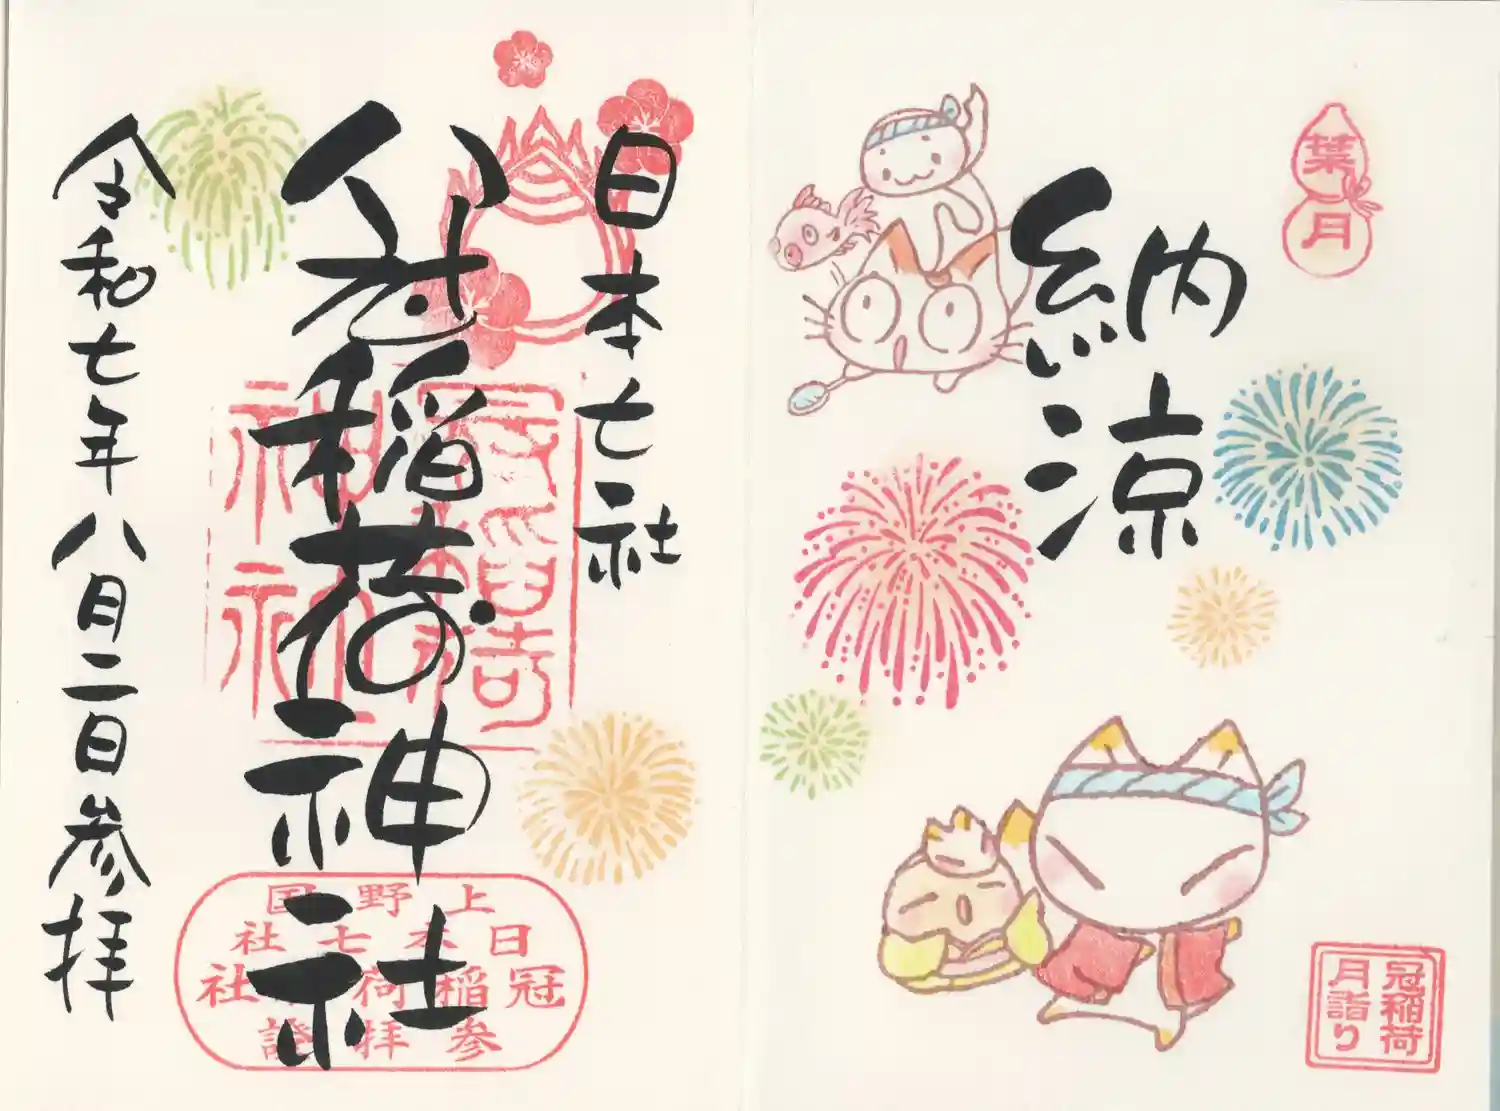 葉月
納涼
冠稲荷
月詣り
日本七社
冠稲荷神社
令和七年八月二日参拝
冠稲荷
神社
上野国
日本七社
冠稲荷神社
参拝證